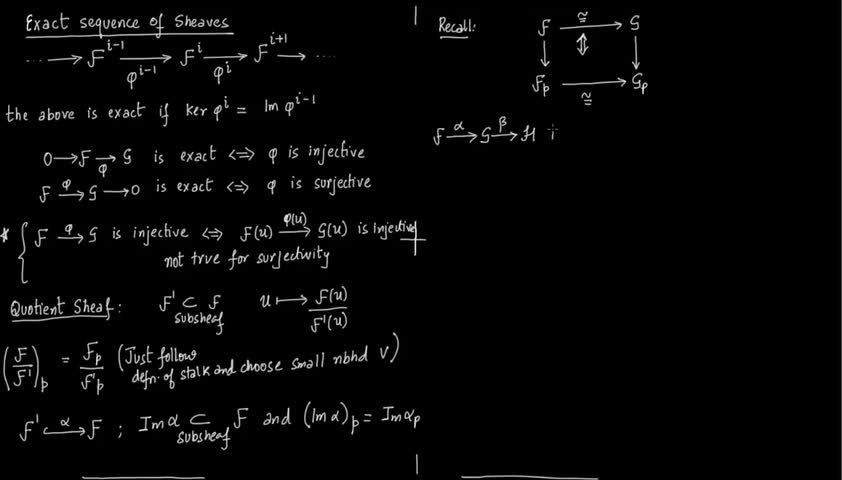 Exact sequence of Sheaves
⋯ → F^{i-1} →_{φ^{i-1}} F^i →_{φ^i} F^{i+1} → ⋯
the above is exact if ker φ^i = Im φ^{i-1}
0 → F →_φ G is exact <=> φ is injective
F →^φ G → 0 is exact <=> φ is surjective
* { F →^φ G is injective <=> F(U) →^{φ(U)} G(U) is injective
not true for surjectivity
Quotient Sheaf: F' ⊂ F U ↦ F(U)/F'(U)
subsheaf
(F/F')_p = F_p/F'_p (Just follow
defn. of stalk and choose small nbhd V)
F' ↪^α F ; Im α ⊂ F and (Im α)_p = Im α_p
subsheaf
Recall: F →^≅ G
↓ ⇕ ↓
F_p →_≅ G_p
F →^α G →^β H